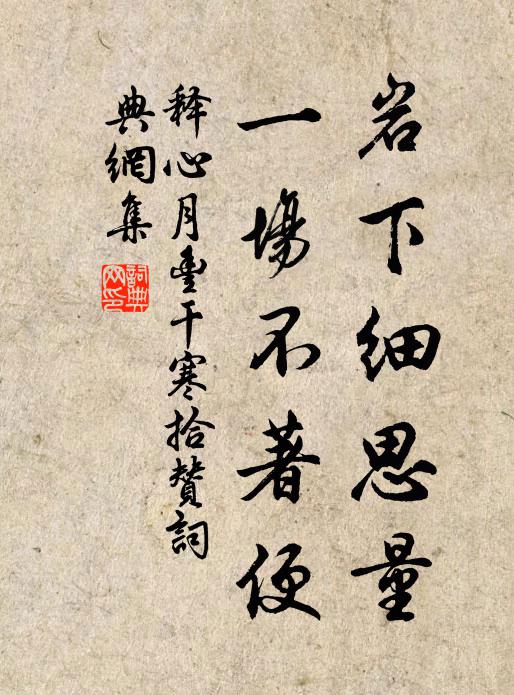 岩下细思量
一場不著便
释心月豊干寒拾赞詞
典網集
詞典
网印